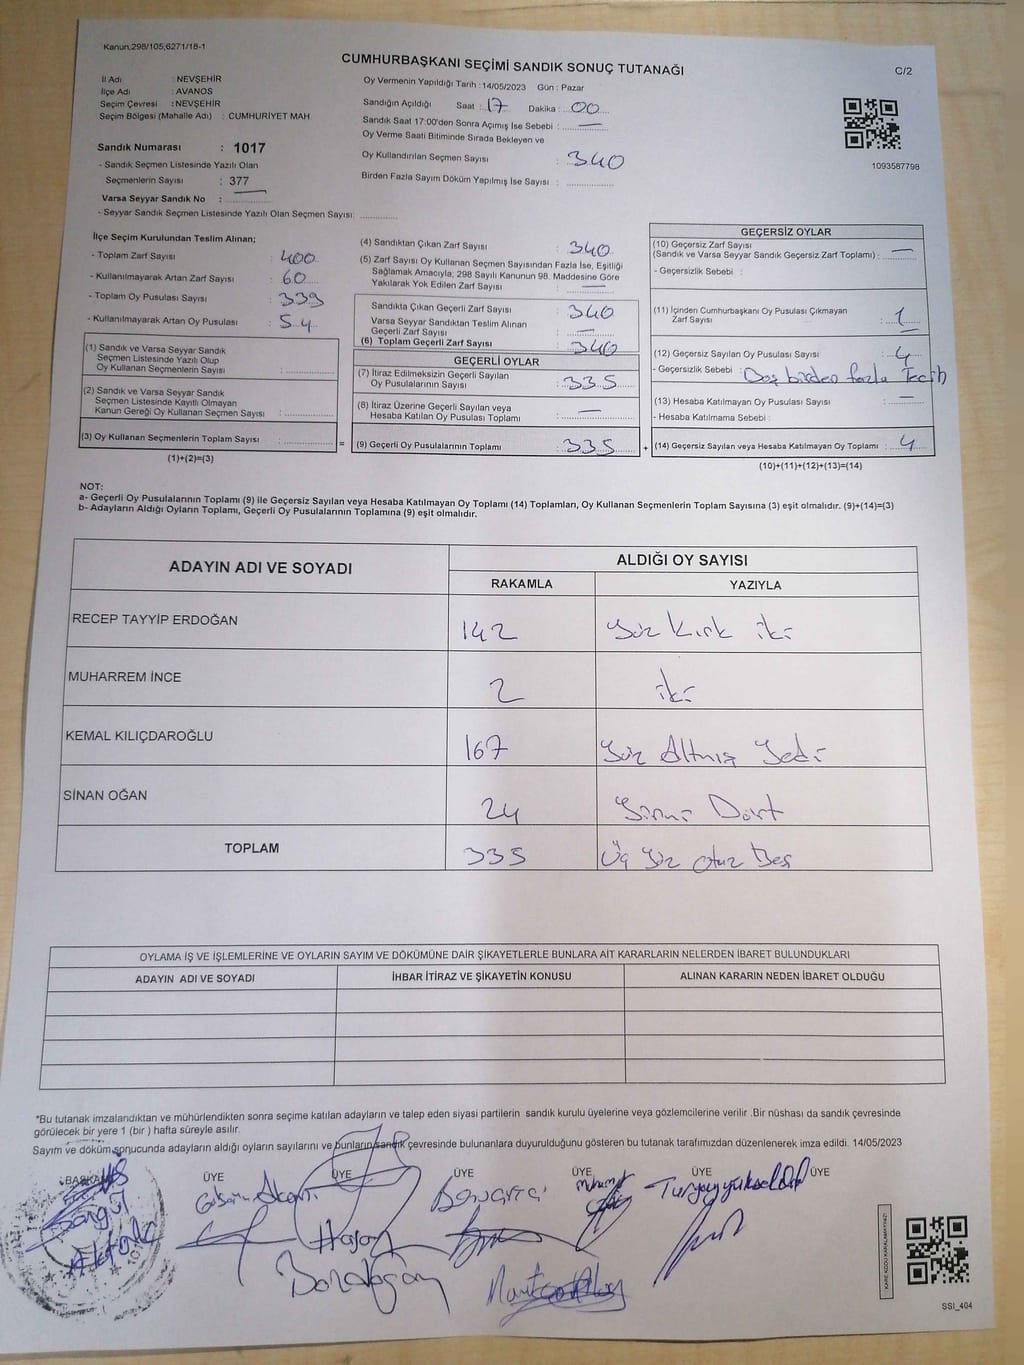 Kanun,298/105,6271/18-1
CUMHURBAŞKANI SEÇİMİ SANDIK SONUÇ TUTANAĞI
C/2
İl Adı : NEVŞEHİR
İlçe Adı : AVANOS
Seçim Çevresi : NEVŞEHİR
Seçim Bölgesi (Mahalle Adı) : CUMHURİYET MAH.
Sandık Numarası : 1017
- Sandık Seçmen Listesinde Yazılı Olan
Seçmenlerin Sayısı : 377
Varsa Seyyar Sandık No :
- Seyyar Sandık Seçmen Listesinde Yazılı Olan Seçmen Sayısı:
Oy Vermenin Yapıldığı Tarih : 14/05/2023 Gün : Pazar
Sandığın Açıldığı Saat : 17 Dakika : 00
Sandık Saat 17:00'den Sonra Açımış İse Sebebi : —
Oy Verme Saati Bitiminde Sırada Bekleyen ve
Oy Kullandırılan Seçmen Sayısı : 340
Birden Fazla Sayım Döküm Yapılmış İse Sayısı :
1093587798
İlçe Seçim Kurulundan Teslim Alınan;
- Toplam Zarf Sayısı : 400
- Kullanılmayarak Artan Zarf Sayısı : 60
- Toplam Oy Pusulası Sayısı : 339
- Kullanılmayarak Artan Oy Pusulası : 54
(1) Sandık ve Varsa Seyyar Sandık
Seçmen Listesinde Yazılı Olup
Oy Kullanan Seçmenlerin Sayısı :
(2) Sandık ve Varsa Seyyar Sandık
Seçmen Listesinde Kayıtlı Olmayan
Kanun Gereği Oy Kullanan Seçmen Sayısı :
(3) Oy Kullanan Seçmenlerin Toplam Sayısı :
(1)+(2)=(3)
=
(4) Sandıktan Çıkan Zarf Sayısı : 340
(5) Zarf Sayısı Oy Kullanan Seçmen Sayısından Fazla İse, Eşitliği
Sağlamak Amacıyla; 298 Sayılı Kanunun 98. Maddesine Göre
Yakılarak Yok Edilen Zarf Sayısı : —
Sandıkta Çıkan Geçerli Zarf Sayısı : 340
Varsa Seyyar Sandıktan Teslim Alınan
Geçerli Zarf Sayısı : —
(6) Toplam Geçerli Zarf Sayısı : 340
GEÇERLİ OYLAR
(7) İtiraz Edilmeksizin Geçerli Sayılan
Oy Pusulalarının Sayısı : 335
(8) İtiraz Üzerine Geçerli Sayılan veya
Hesaba Katılan Oy Pusulası Toplamı : —
(9) Geçerli Oy Pusulalarının Toplamı : 335
+
GEÇERSİZ OYLAR
(10) Geçersiz Zarf Sayısı
(Sandık ve Varsa Seyyar Sandık Geçersiz Zarf Toplamı) : —
- Geçersizlik Sebebi :
(11) İçinden Cumhurbaşkanı Oy Pusulası Çıkmayan
Zarf Sayısı : 1
(12) Geçersiz Sayılan Oy Pusulası Sayısı : 4
- Geçersizlik Sebebi : Boş birden fazla Tecih
(13) Hesaba Katılmayan Oy Pusulası Sayısı : —
- Hesaba Katılmama Sebebi :
(14) Geçersiz Sayılan veya Hesaba Katılmayan Oy Toplamı : 4
(10)+(11)+(12)+(13)=(14)
NOT:
a- Geçerli Oy Pusulalarının Toplamı (9) ile Geçersiz Sayılan veya Hesaba Katılmayan Oy Toplamı (14) Toplamları, Oy Kullanan Seçmenlerin Toplam Sayısına (3) eşit olmalıdır. (9)+(14)=(3)
b- Adayların Aldığı Oyların Toplamı, Geçerli Oy Pusulalarının Toplamına (9) eşit olmalıdır.
ADAYIN ADI VE SOYADI
ALDIĞI OY SAYISI
RAKAMLA YAZIYLA
RECEP TAYYİP ERDOĞAN 142 Yüz Kırk iki
MUHARREM İNCE 2 iki
KEMAL KILIÇDAROĞLU 167 Yüz Altmış Yedi
SİNAN OĞAN 24 Yirmi Dört
TOPLAM 335 Üç Yüz otuz Beş
OYLAMA İŞ VE İŞLEMLERİNE VE OYLARIN SAYIM VE DÖKÜMÜNE DAİR ŞİKAYETLERLE BUNLARA AİT KARARLARIN NELERDEN İBARET BULUNDUKLARI
ADAYIN ADI VE SOYADI İHBAR İTİRAZ VE ŞİKAYETİN KONUSU ALINAN KARARIN NEDEN İBARET OLDUĞU
*Bu tutanak imzalandıktan ve mühürlendikten sonra seçime katılan adayların ve talep eden siyasi partilerin sandık kurulu üyelerine veya gözlemcilerine verilir .Bir nüshası da sandık çevresinde
görülecek bir yere 1 (bir ) hafta süreyle asılır.
Sayım ve döküm sonucunda adayların aldığı oyların sayılarını ve bunların sandık çevresinde bulunanlara duyurulduğunu gösteren bu tutanak tarafımızdan düzenlenerek imza edildi. 14/05/2023
BAŞKAN ÜYE ÜYE ÜYE ÜYE ÜYE ÜYE
Songül
Hasan
KARE KODU KARALAMAYINIZ!
SSI_404